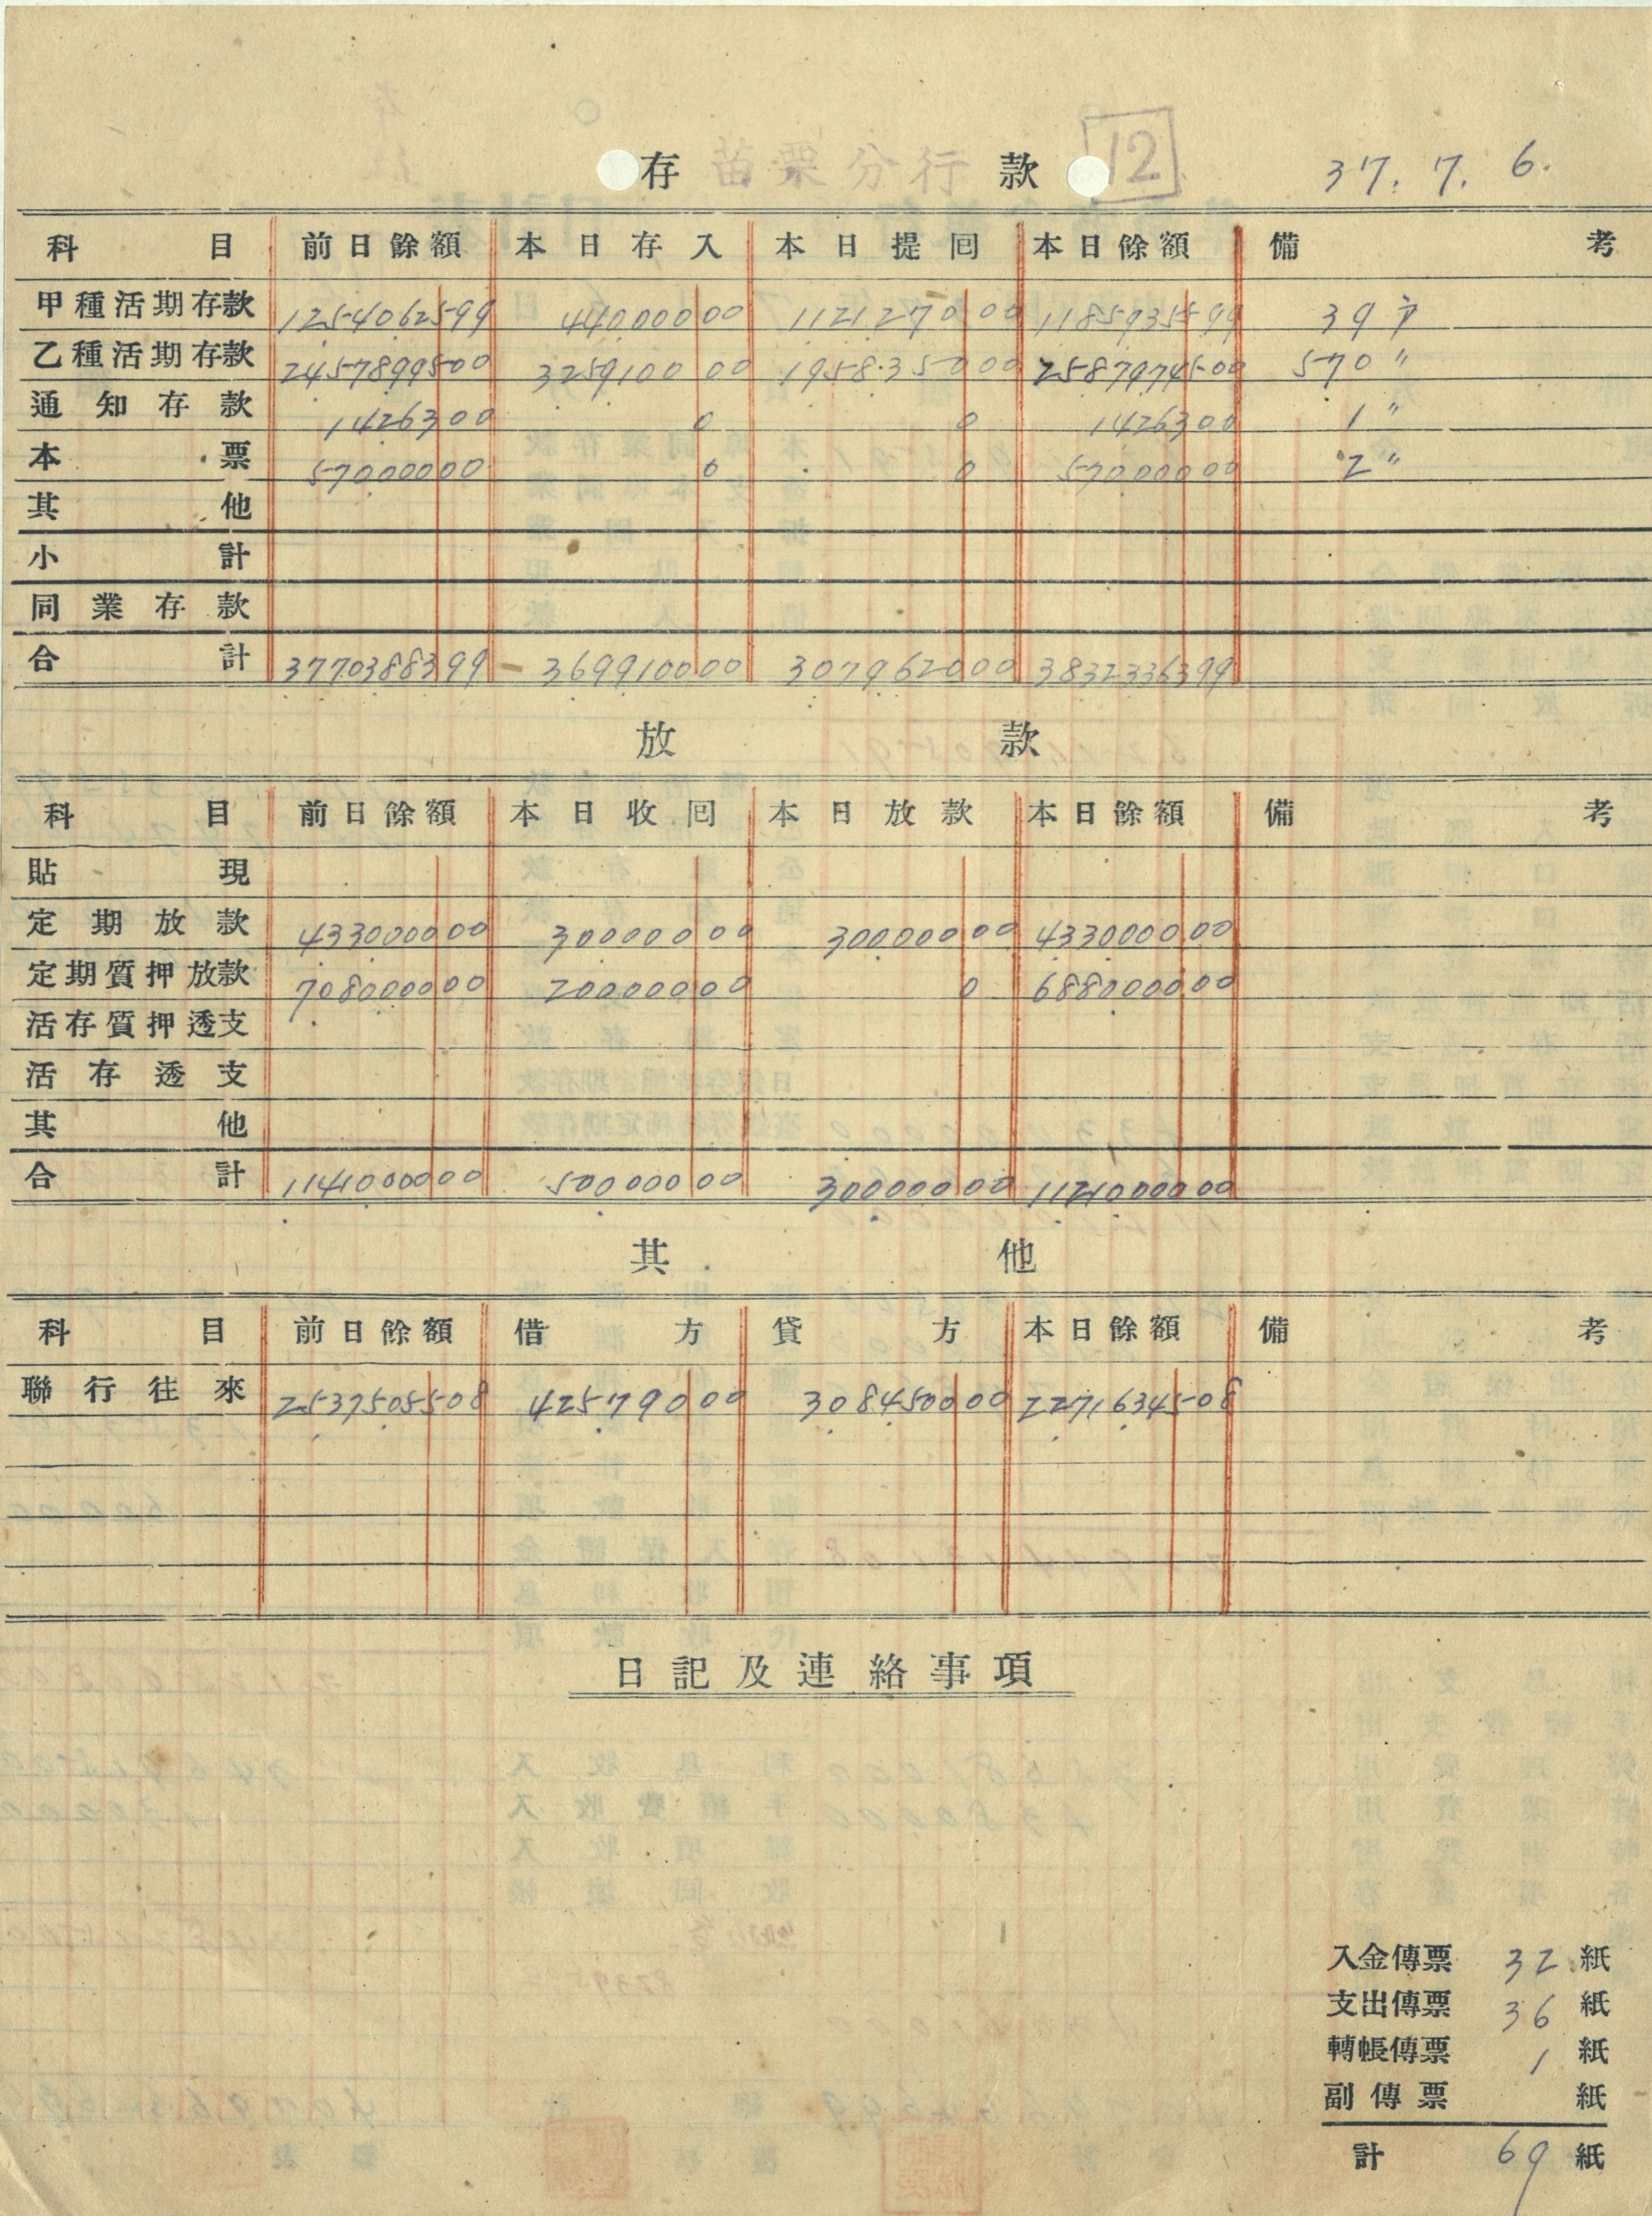 存 苗栗分行 款 12 37. 7. 6.
科目 前日餘額 本日存入 本日提囘 本日餘額 備考
甲種活期存款 12540625 99 440000 00 1121270 00 11859355 99 39戸
乙種活期存款 24578995 00 3259100 00 1958350 00 25879745 00 570〃
通知存款 14263 00 0 0 14263 00 1〃
本票 570000 00 0 0 570000 00 2〃
其他
小計
同業存款
合計 37703883 99 3699100 00 3079620 00 38323363 99
放款
科目 前日餘額 本日收囘 本日放款 本日餘額 備考
貼現
定期放款 4330000 00 300000 00 300000 00 4330000 00
定期質押放款 7080000 00 200000 00 0 6880000 00
活存質押透支
活存透支
其他
合計 11410000 00 500000 00 300000 00 11210000 00
其他
科目 前日餘額 借方 貸方 本日餘額 備考
聯行往來 25375055 08 425790 00 3084500 00 22716345 08
日記及連絡事項
入金傳票 32 紙
支出傳票 36 紙
轉帳傳票 1 紙
副傳票 紙
計 69 紙